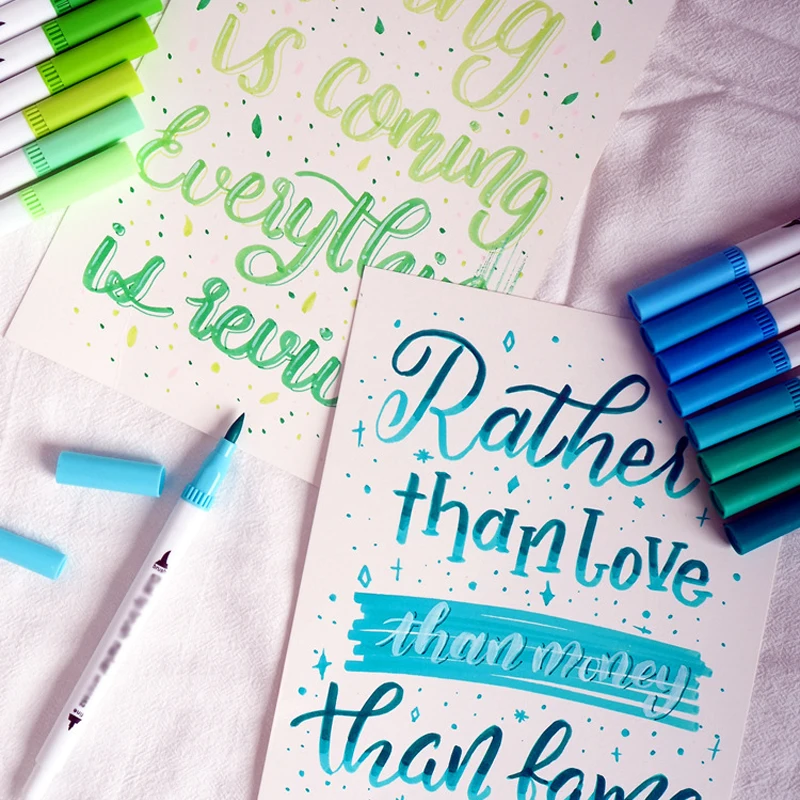 is coming
Everything
is
Rather
than love
than money
than fame